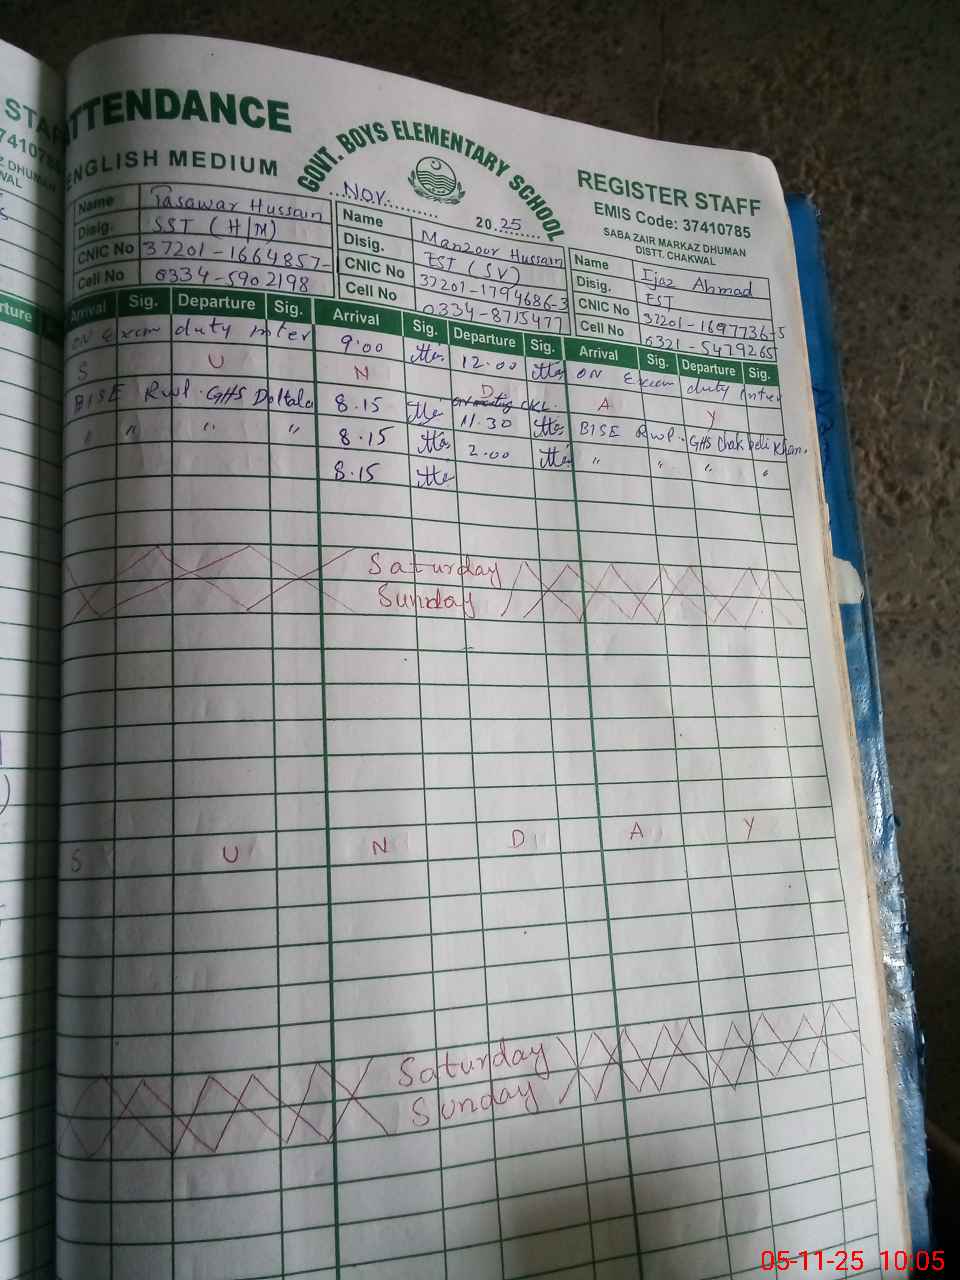 STAF
ATTENDANCE
ENGLISH MEDIUM
GOVT. BOYS ELEMENTARY SCHOOL
REGISTER STAFF
EMIS Code: 37410785
SABA ZAIR MARKAZ DHUMAN
DISTT. CHAKWAL
Nov. 2025
Name Tasawar Hussain
Disig. SST (H/M)
CNIC No 37201-1664857-
Cell No 0334-5902198
Name Manzoor Hussain
Disig. EST (SV)
CNIC No 37201-1794686-3
Cell No 0334-8715477
Name Ijaz Ahmad
Disig. EST
CNIC No 37201-1697736-5
Cell No 0321-5479265
Arrival Sig. Departure Sig. Arrival Sig. Departure Sig. Arrival Sig. Departure Sig.
ON Exam duty Inter 9.00 12.00 ON Exam duty Inter
S U N D A Y
BISE Rwl. GHS Doltala 8.15 11.30 BISE Rwl. GHS Chak beli Khan.
" " " " 8.15 2.00 " " " "
8.15
Saturday
Sunday
S U N D A Y
Saturday
Sunday
05-11-25 10:05